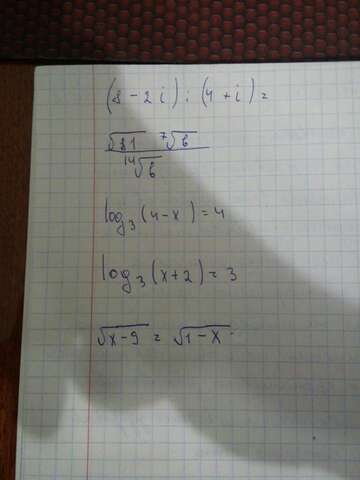 (8 - 2i) : (4 + i) =
√81 ⁷√b
¹⁴√b
log₃ (4 - x) = 4
log₃ (x + 2) = 3
√x - 9 = √1 - x